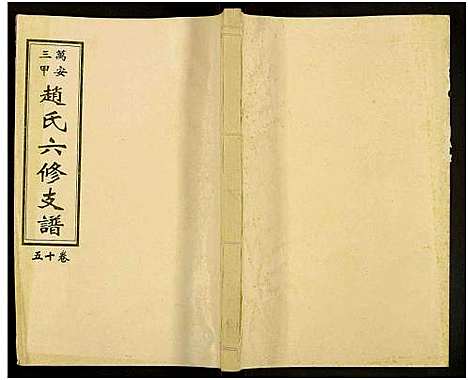 萬安
三甲
趙氏六修支譜
卷十五